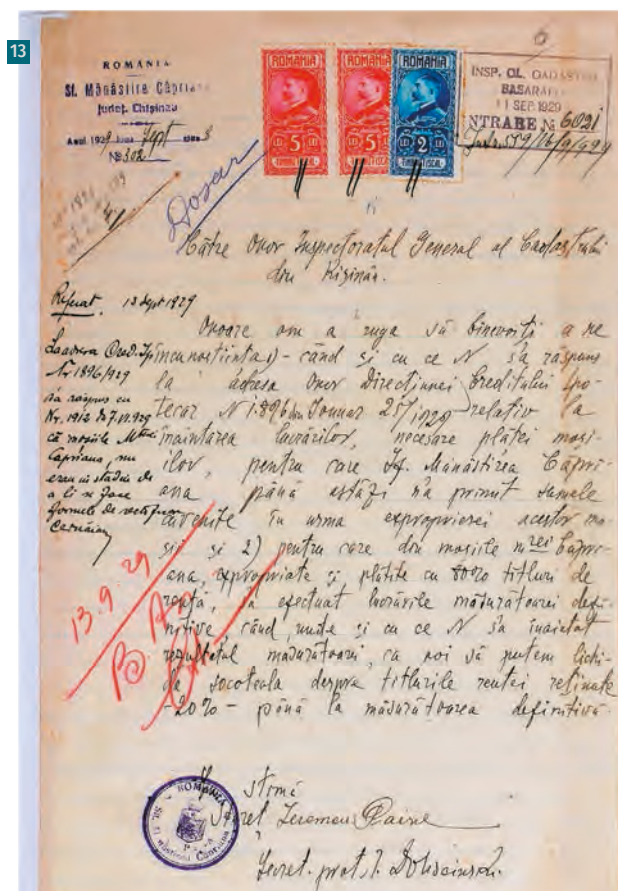 13
ROMANIA
Sf. Mănăstire Căpriana
Județ. Chișinău
Anul 1929 luna Sept ziua 8
№ 302
ROMANIA
5 LEI
TIMBRU FISCAL
ROMANIA
5 LEI
TIMBRU FISCAL
ROMANIA
LEI 2 LEI
TIMBRU FISCAL
INSP. GL. CADASTRU
BASARABIA
11 SEP. 1929
INTRARE № 6021
Dosar
Către Onor Inspectoratul General al Cadastrului
din Kișinău.
Referat. 13 Sept 1929
La adresa Cred. Ip.
Nr 1896/929
s'a răspuns cu
Nr. 1912 din 7.VI.929
că moșiile M-rei
Capriana, nu
erau in stadiu de
a li se face
formele de
Onoare am a ruga să binevoiți a ne
incunostiința 1) - când și cu ce N s'a răspuns
la adresa Onor Direcțiunei Creditului Ipo-
tecar N 1.896 din Iounar 25/1929 - relativ la
înaintarea lucrărilor, necesare plăței moși-
ilor, pentru care Sf. Mănăstirea Căpri-
ana până astăzi n'a primit sumele
cuvenite în urma exproprierei acestor mo-
șii și 2) pentru care din moșiile m-rei Căpri-
ana, expropriate și plătite cu 80% titluri de
rentă, s'a efectuat lucrările măsurătoarei defi-
nitive, când, unde și cu ce N s'a înaintat
rezultatul măsurătoarei, ca noi să putem lichi-
da socoteala despre titlurile rentei reținate
-20%- până la măsurătoarea definitivă.
13.9.29
ROMÂNIA
Sf. Mănăstirea Căpriana
Secret.